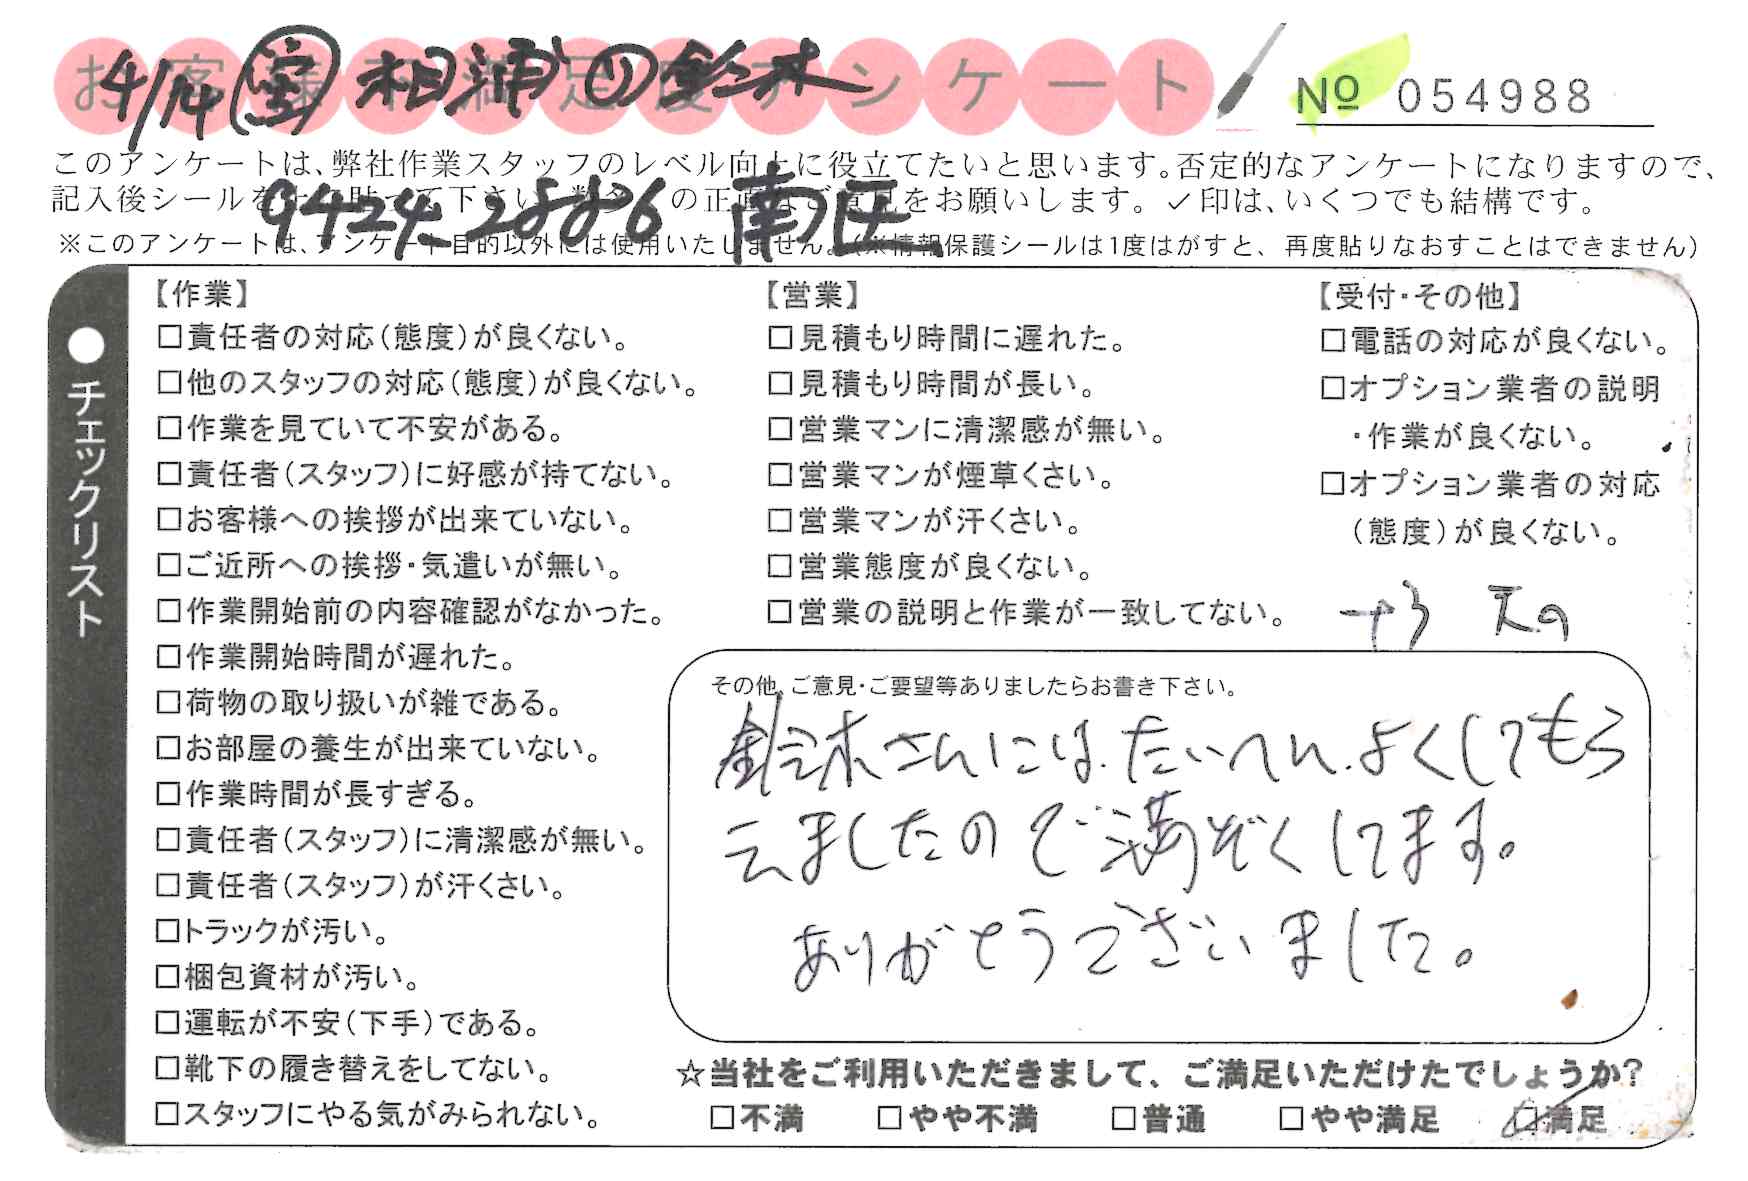 お客様満足度アンケート
4/14 (空) 相浦 鈴木
№ 054988
このアンケートは、弊社作業スタッフのレベル向上に役立てたいと思います。否定的なアンケートになりますので、
記入後シールを 貼って下さい の正直なご意見をお願いします。✓印は、いくつでも結構です。
9424 2886 南区
※このアンケートは、アンケート目的以外には使用いたしません。(※情報保護シールは1度はがすと、再度貼りなおすことはできません)
●チェックリスト
【作業】
□責任者の対応(態度)が良くない。
□他のスタッフの対応(態度)が良くない。
□作業を見ていて不安がある。
□責任者(スタッフ)に好感が持てない。
□お客様への挨拶が出来ていない。
□ご近所への挨拶・気遣いが無い。
□作業開始前の内容確認がなかった。
□作業開始時間が遅れた。
□荷物の取り扱いが雑である。
□お部屋の養生が出来ていない。
□作業時間が長すぎる。
□責任者(スタッフ)に清潔感が無い。
□責任者(スタッフ)が汗くさい。
□トラックが汚い。
□梱包資材が汚い。
□運転が不安(下手)である。
□靴下の履き替えをしてない。
□スタッフにやる気がみられない。
【営業】
□見積もり時間に遅れた。
□見積もり時間が長い。
□営業マンに清潔感が無い。
□営業マンが煙草くさい。
□営業マンが汗くさい。
□営業態度が良くない。
□営業の説明と作業が一致してない。
【受付・その他】
□電話の対応が良くない。
□オプション業者の説明
・作業が良くない。
□オプション業者の対応
(態度)が良くない。
その他、ご意見・ご要望等ありましたらお書き下さい。
鈴木さんには、たいへん、よくしてもら
えましたので満ぞくしてます。
ありがとうございました。
☆当社をご利用いただきまして、ご満足いただけたでしょうか?
□不満 □やや不満 □普通 □やや満足 ☑満足